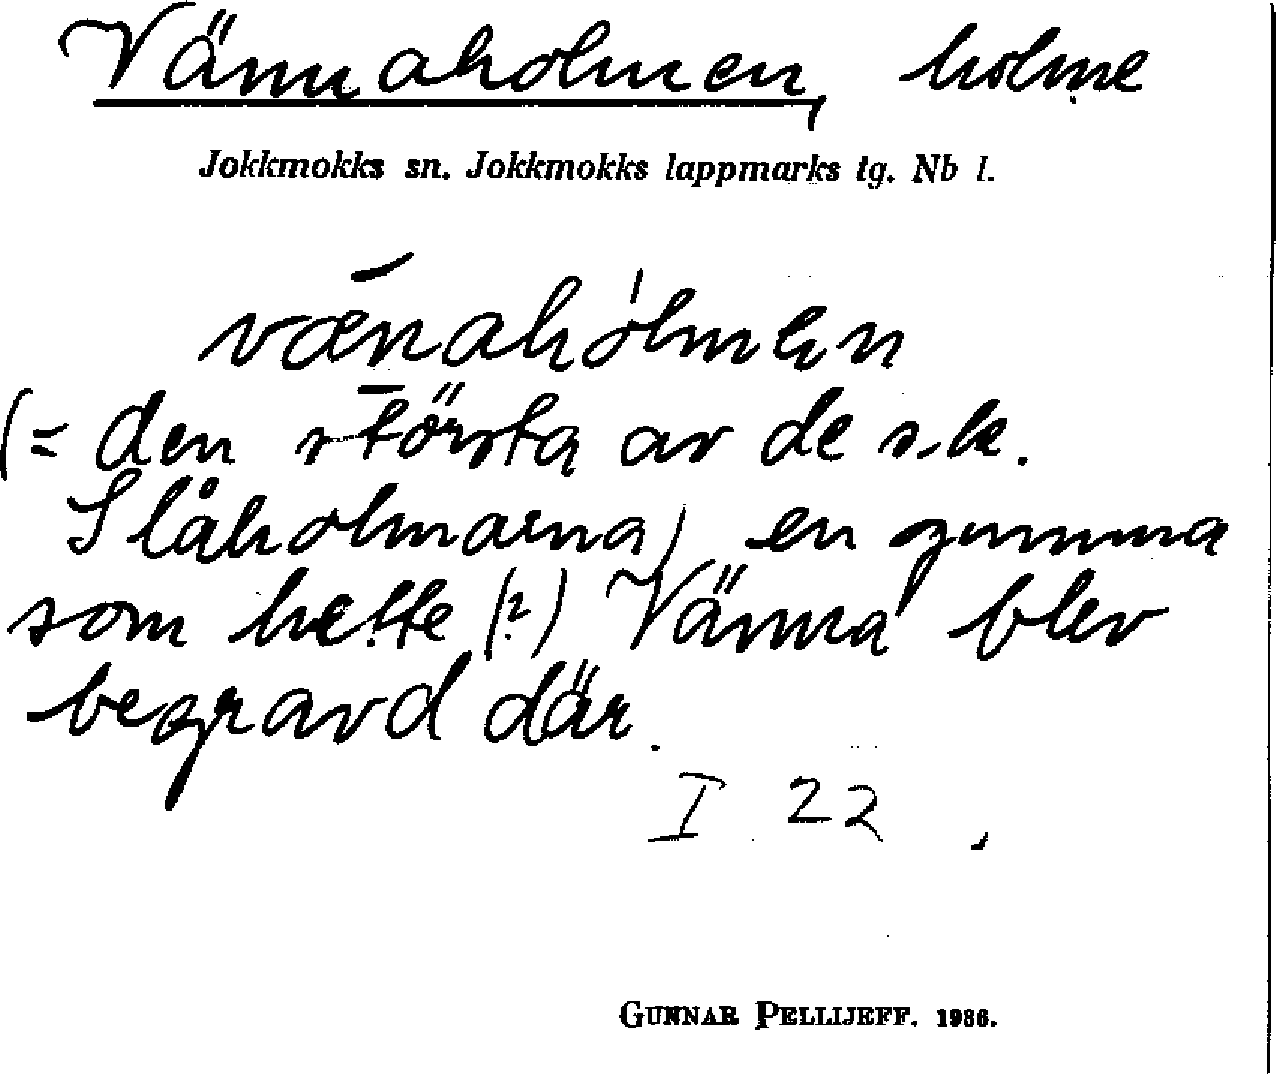 Vännaholmen, holme
Jokkmokks sn. Jokkmokks lappmarks tg. Nb l.
vænahòlmen
(= den största av de s.k.
Slåholmarna) en gumma
som hette (?) Vänna blev
begravd där.
I 22
GUNNAR PELLIJEFF. 1986.